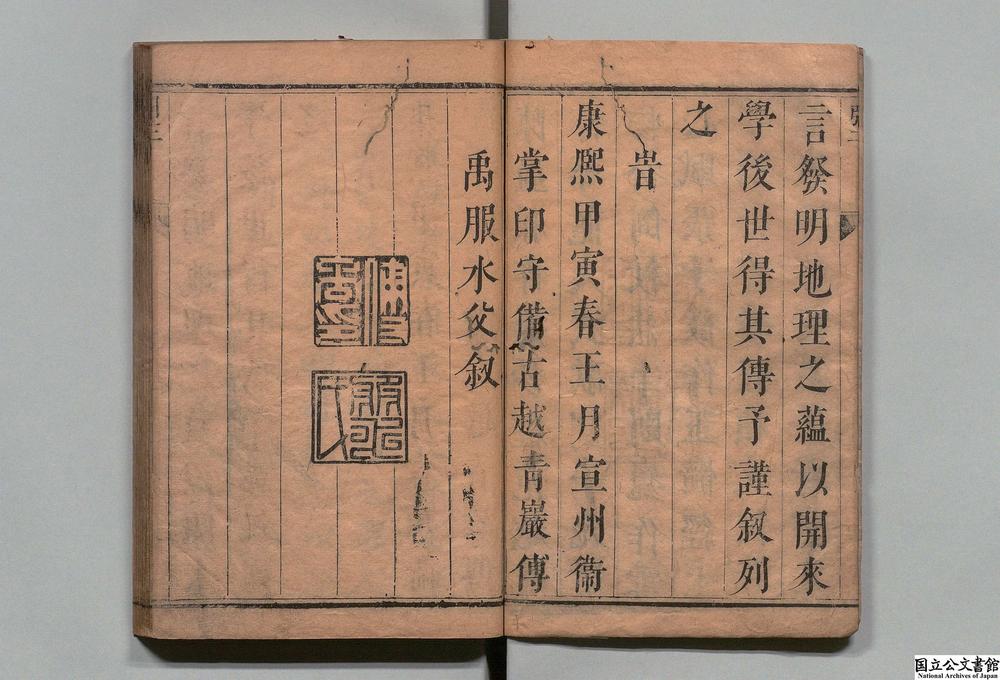 言發明地理之蘊以開來
學後世得其傳予謹叙列
之
旹
康熈甲寅春王月宣州衞
掌印守備古越青巖傅
禹服水父叙
国立公文書館
National Archives of Japan